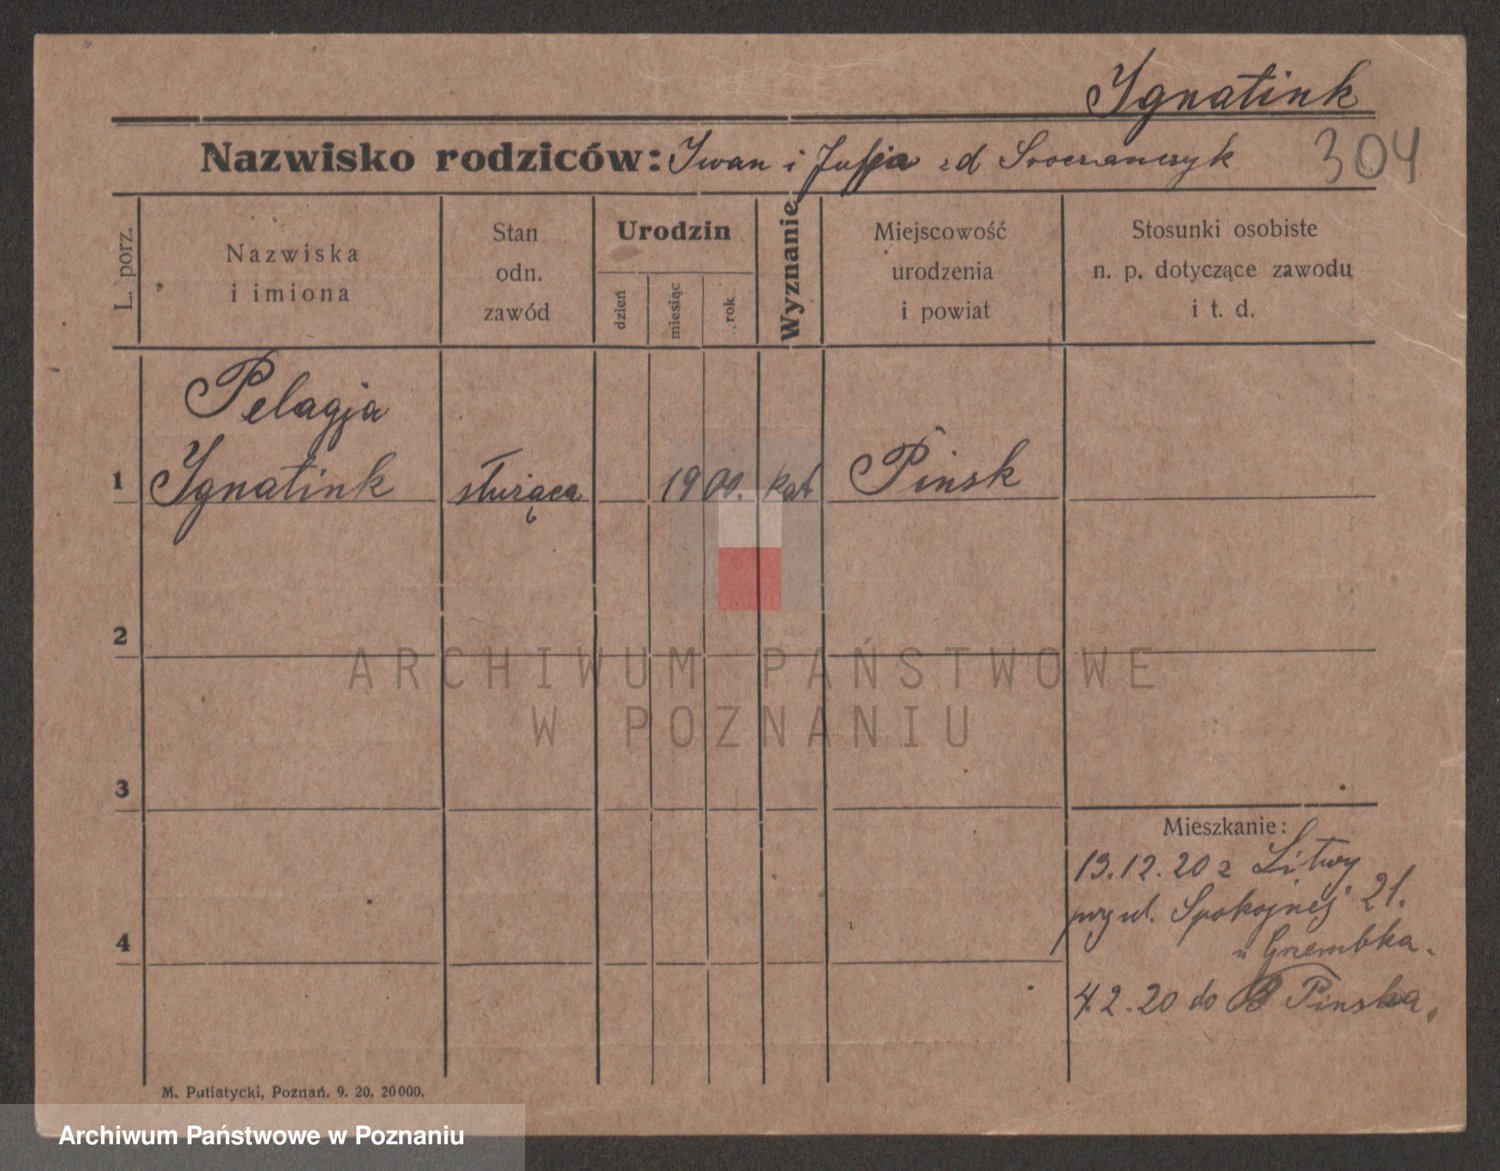 Ignatiuk
Nazwisko rodziców: Iwan i Julja z d
304
L. porz.
Nazwiska
i imiona
Stan
odn.
zawód
Urodzin
dzień
miesiąc
rok
Wyznanie
Miejscowość
urodzenia
i powiat
Stosunki osobiste
n. p. dotyczące zawodu
i t. d.
Pelagja
1 Ignatiuk służąca 1901. kat Pińsk
2
3
4
Mieszkanie:
13.12.20 z Litwy
przy ul. Spokojnej 21.
u Grzembka.
4.2.20 do Pinska.
M. Putiatycki, Poznań. 9. 20. 20000.
ARCHIWUM PAŃSTWOWE
W POZNANIU
Archiwum Państwowe w Poznaniu